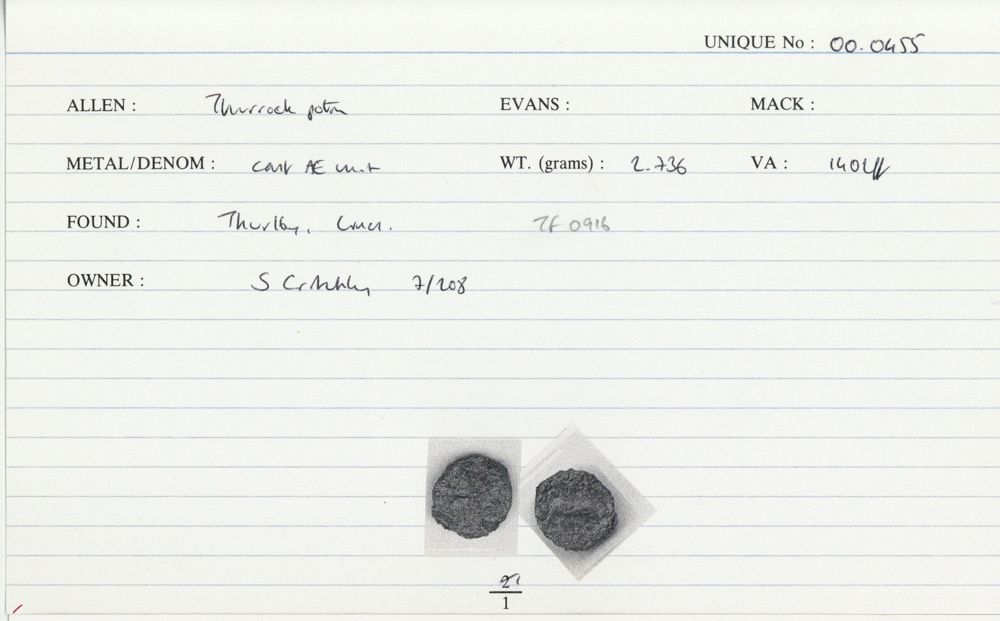 UNIQUE No : 00.0455
ALLEN : Thurrock potin EVANS : MACK :
METAL/DENOM : cast AE unit WT. (grams) : 2.736 VA : 1402ff
FOUND : Thurlby, Lincs. TF 0916
OWNER : S Critchley 7/208
2
1